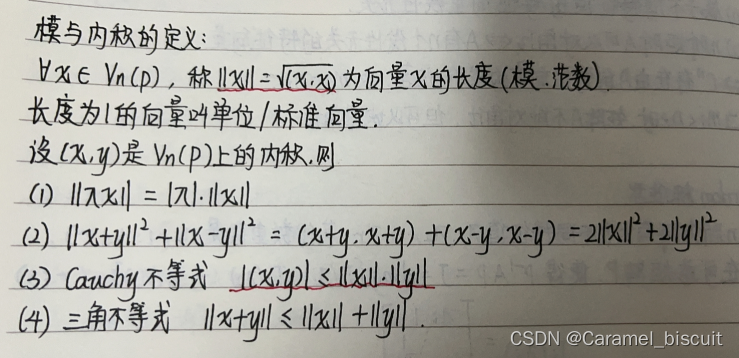 模与内积的定义:
∀x∈Vn(P),称||x||=√(x,x)为向量x的长度(模.范数)
长度为1的向量叫单位/标准向量.
设(x,y)是Vn(P)上的内积.则
(1) ||λx|| = |λ|·||x||
(2) ||x+y||² + ||x-y||² = (x+y, x+y) + (x-y, x-y) = 2||x||² + 2||y||²
(3) Cauchy不等式 |(x,y)| ≤ ||x||·||y||
(4) 三角不等式 ||x+y|| ≤ ||x|| + ||y||.
CSDN @Caramel_biscuit